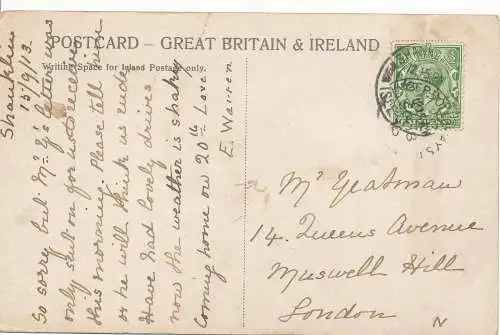 POSTCARD – GREAT BRITAIN & IRELAND
Writing Space for Inland Postage only.
Shanklin
15/9/13
So sorry but Mr. G's letter was
only sent on for us to receive
this morning. Please tell him
or he will think us rude
Have had lovely drives
now the weather is shaky
Coming home on 20th Love
E. Warren
Mrs Yeatman
14. Queens Avenue
Muswell Hill
London
N